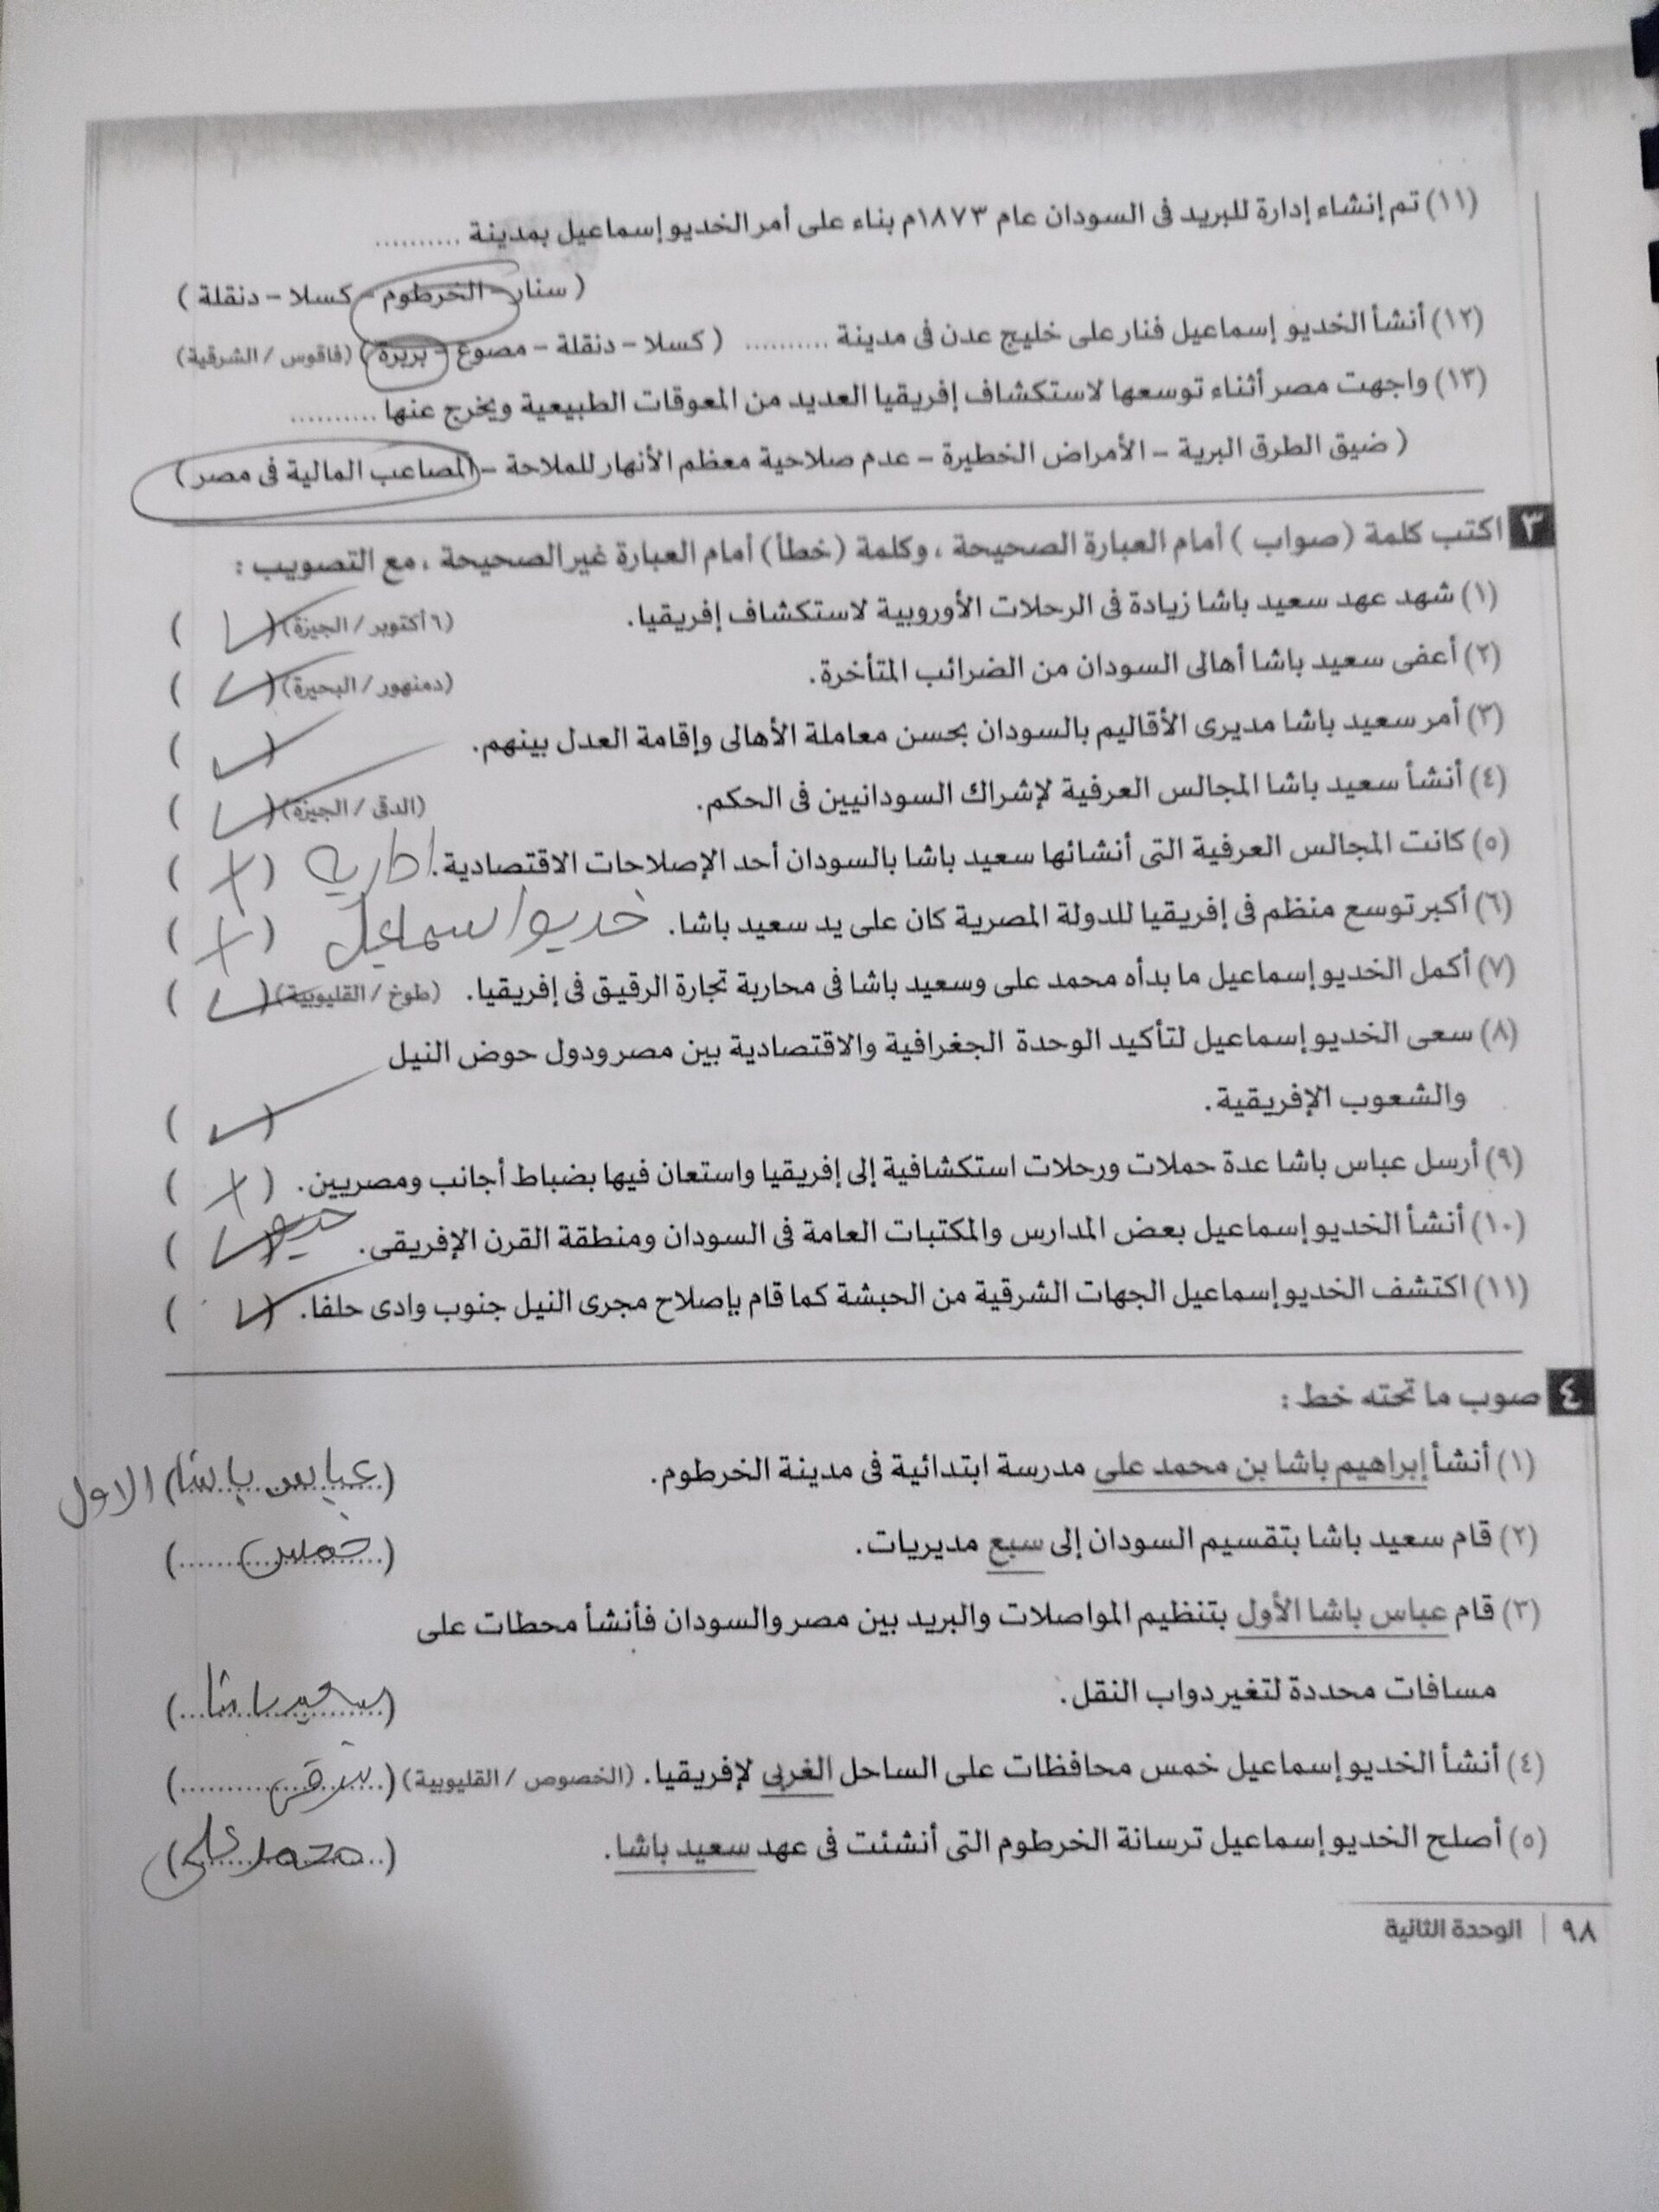 (١١) تم إنشاء إدارة للبريد فى السودان عام ١٨٧٣م بناء على أمر الخديو إسماعيل بمدينة ..........
( سنار - الخرطوم - كسلا - دنقلة )
(١٢) أنشأ الخديو إسماعيل فنار على خليج عدن فى مدينة .......... ( كسلا - دنقلة - مصوع - بربرة ) (فاقوس / الشرقية)
(١٣) واجهت مصر أثناء توسعها لاستكشاف إفريقيا العديد من المعوقات الطبيعية ويخرج عنها ..........
( ضيق الطرق البرية - الأمراض الخطيرة - عدم صلاحية معظم الأنهار للملاحة - المصاعب المالية فى مصر )
٣ اكتب كلمة (صواب ) أمام العبارة الصحيحة ، وكلمة (خطأ) أمام العبارة غير الصحيحة ، مع التصويب :
(١) شهد عهد سعيد باشا زيادة فى الرحلات الأوروبية لاستكشاف إفريقيا. (٦ أكتوبر / الجيزة) ( ✓ )
(٢) أعفى سعيد باشا أهالى السودان من الضرائب المتأخرة. (دمنهور / البحيرة) ( ✓ )
(٣) أمر سعيد باشا مديرى الأقاليم بالسودان بحسن معاملة الأهالى وإقامة العدل بينهم. ( ✓ )
(٤) أنشأ سعيد باشا المجالس العرفية لإشراك السودانيين فى الحكم. (الدقى / الجيزة) ( ✓ )
(٥) كانت المجالس العرفية التى أنشائها سعيد باشا بالسودان أحد الإصلاحات الاقتصادية. ادارية ( X )
(٦) أكبر توسع منظم فى إفريقيا للدولة المصرية كان على يد سعيد باشا. خديو اسماعيل ( X )
(٧) أكمل الخديو إسماعيل ما بدأه محمد على وسعيد باشا فى محاربة تجارة الرقيق فى إفريقيا. (طوخ / القليوبية) ( ✓ )
(٨) سعى الخديو إسماعيل لتأكيد الوحدة الجغرافية والاقتصادية بين مصر ودول حوض النيل
والشعوب الإفريقية. ( ✓ )
(٩) أرسل عباس باشا عدة حملات ورحلات استكشافية إلى إفريقيا واستعان فيها بضباط أجانب ومصريين. ( X )
(١٠) أنشأ الخديو إسماعيل بعض المدارس والمكتبات العامة فى السودان ومنطقة القرن الإفريقى. ( ✓ )
(١١) اكتشف الخديو إسماعيل الجهات الشرقية من الحبشة كما قام بإصلاح مجرى النيل جنوب وادى حلفا. ( ✓ )
٤ صوب ما تحته خط :
(١) أنشأ إبراهيم باشا بن محمد على مدرسة ابتدائية فى مدينة الخرطوم. (عباس باشا) الاول
(٢) قام سعيد باشا بتقسيم السودان إلى سبع مديريات. (خمس)
(٣) قام عباس باشا الأول بتنظيم المواصلات والبريد بين مصر والسودان فأنشأ محطات على
مسافات محددة لتغير دواب النقل. (سعيد باشا)
(٤) أنشأ الخديو إسماعيل خمس محافظات على الساحل الغربى لإفريقيا. (الخصوص / القليوبية) (شرقى)
(٥) أصلح الخديو إسماعيل ترسانة الخرطوم التى أنشئت فى عهد سعيد باشا. (محمد على)
٩٨ | الوحدة الثانية